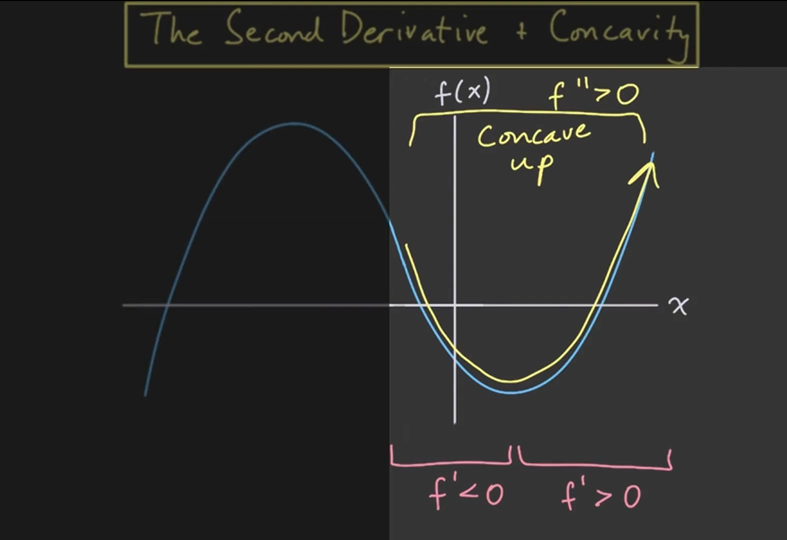 The Second Derivative + Concavity
f(x) f''>0
Concave
up
x
f'<0 f'>0